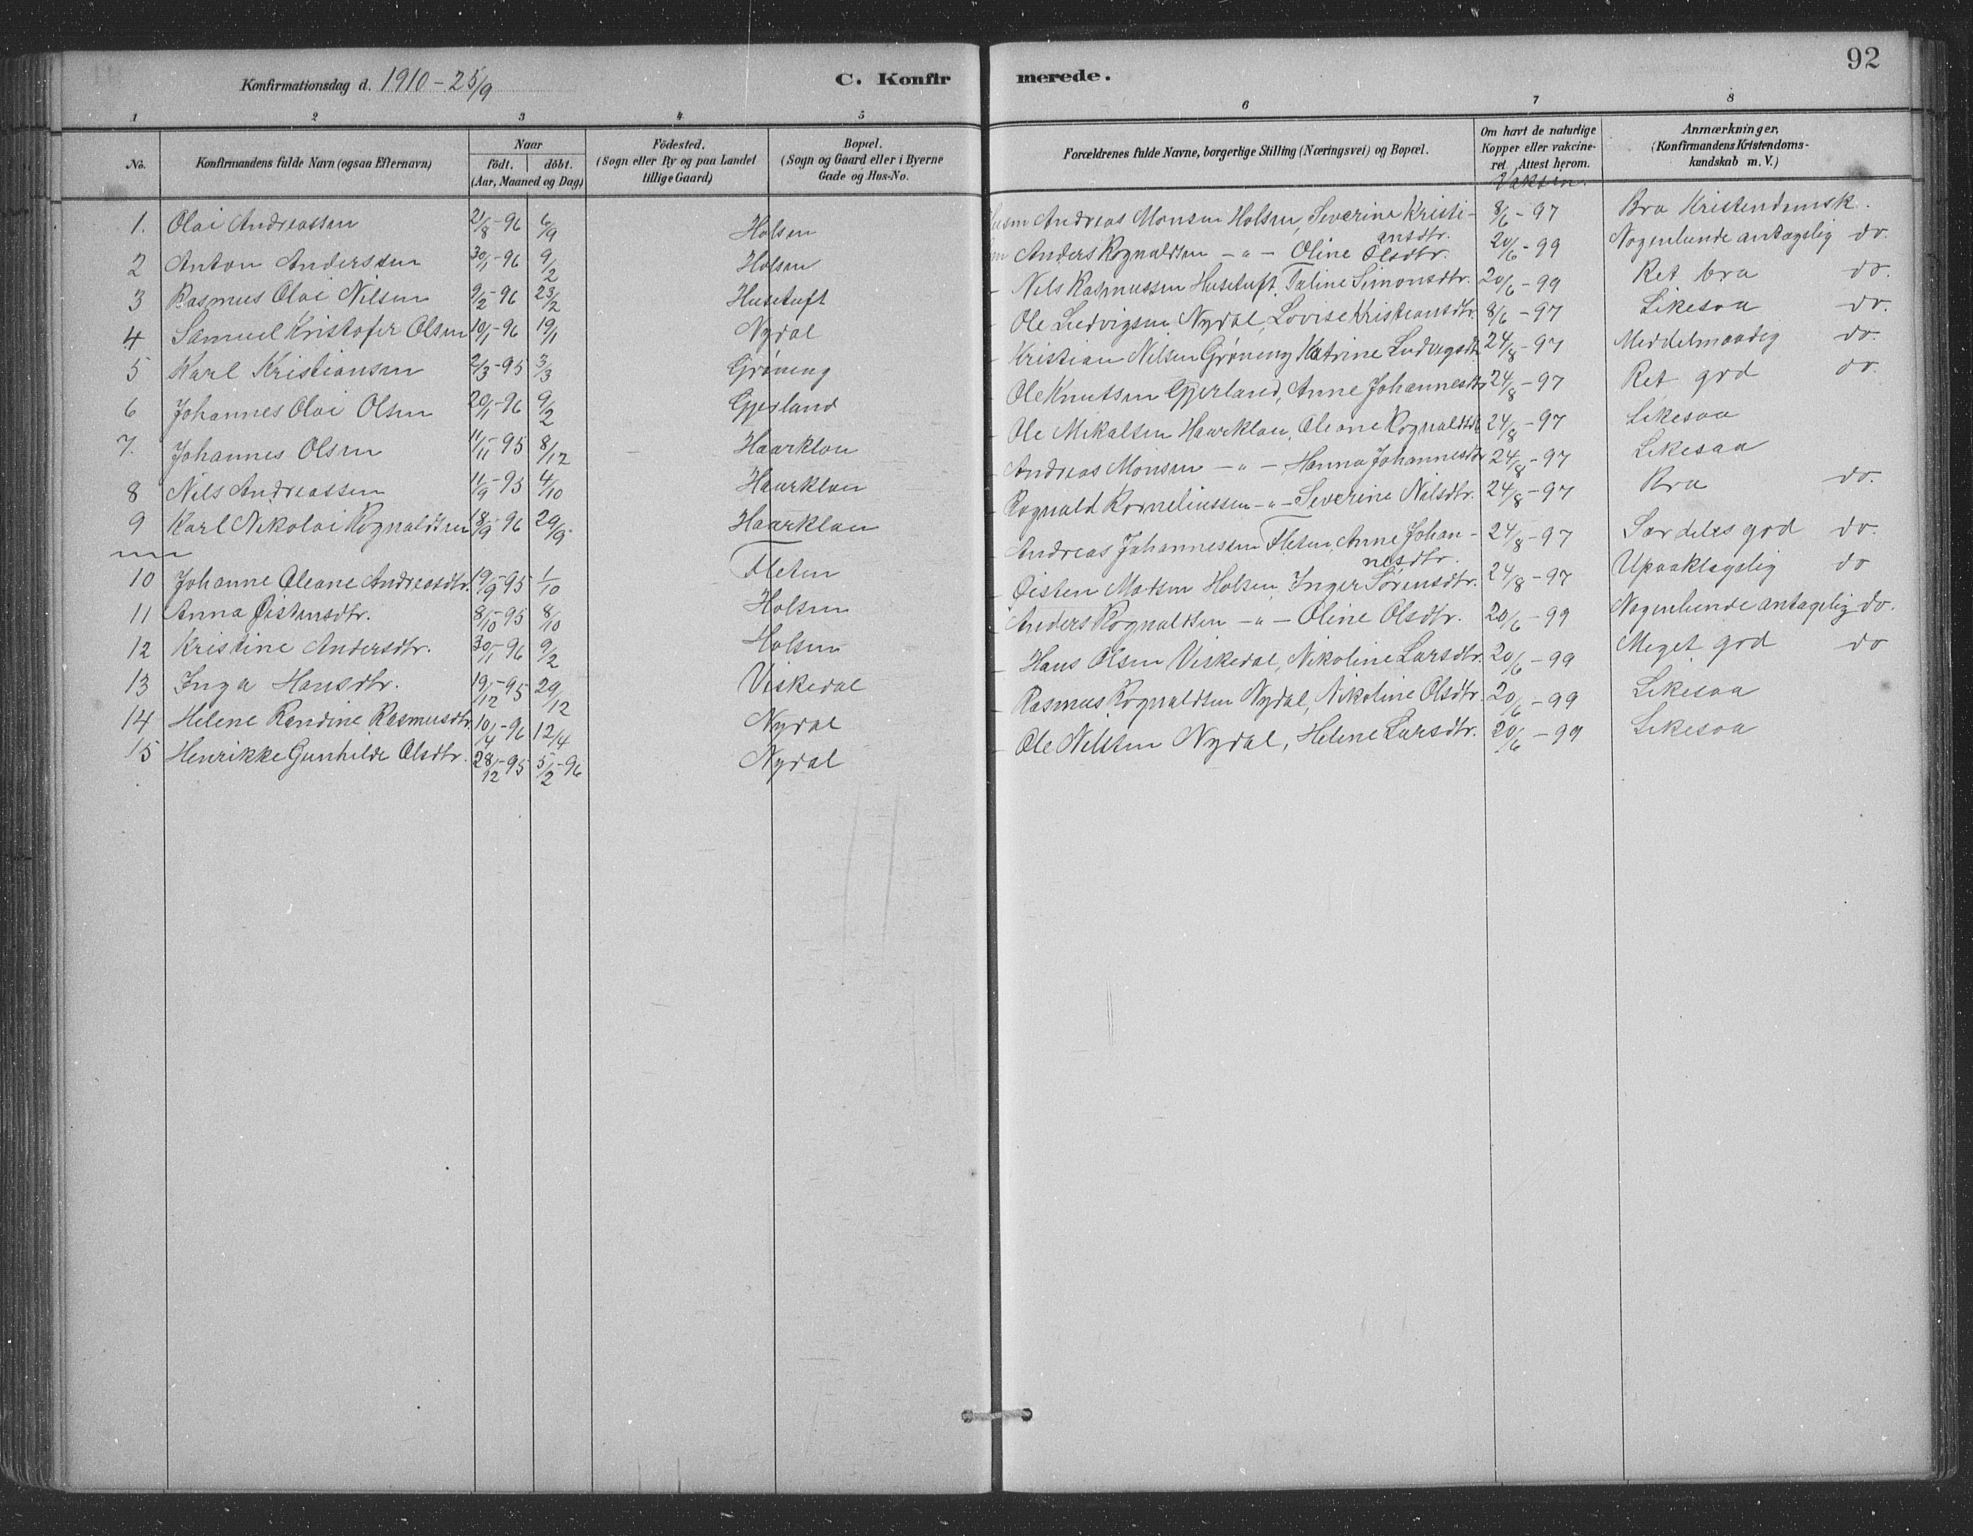 92
Konfirmationsdag d. 1910 - 25/9 C. Konfirmerede.
1 2 3 4 5 6 7 8
No. Konfirmandens fulde Navn (ogsaa Efternavn) Naar födt. döbt. (Aar, Maaned og Dag) Födested. (Sogn eller By og paa Landet tillige Gaard) Bopæl. (Sogn og Gaard eller i Byerne Gade og Hus-No. Forældrenes fulde Navne, borgerlige Stilling (Næringsvei) og Bopæl. Om havt de naturlige Kopper eller vakcineret, Attest herom. Vaksin. Anmærkninger, (Konfirmandens Kristendomskundskab m. V.)
1. Olai Andreassen 21/8-96 6/9 Holsen Andreas Monsen Holsen, Severine Kristiansdtr. 8/6-97 Bra Kristendomsk.
2 Anton Anderssen 30/1-96 9/2 Holsen Anders Rognaldsen -"- Oline Olsdtr. 20/6-99 Nogenlunde antagelig do.
3 Rasmus Olai Nilsen 9/2-96 23/2 Husetuft - Nils Rasmussen Husetuft. Taline Simonsdtr. 20/6-99 Ret bra do.
4 Samuel Kristofer Olsen 10/1-96 19/1 Nydal - Ole Ludvigsen Nydal, Lovise Kristiansdtr. 8/6-97 Likesaa do.
5 Karl Kristiansen 2/3-95 3/3 Grøning - Kristian Nilsen Grøning Katrine Ludvigsdtr 24/8-97 Middelmaadig do.
6 Johannes Olai Olsen 20/1-96 9/2 Gjerland - Ole Knutsen Gjerland, Anne Johannesdtr 24/8-97 Ret god do.
7. Johannes Olsen 11/11-95 8/12 Haarklau - Ole Mikalsen Haarklau, Oleane Rognaldsdtr 24/8-97 Likesaa
8 Nils Andreassen 11/9-95 4/10 Haarklau - Andreas Monsen -"- Hanna Johannesdtr 24/8-97 Likesaa
9 Karl Nikolai Rognaldsen 18/9-96 29/9. Haarklau - Rognald Korneliussen -"- Severine Nilsdtr. 24/8-97 Bra do.
10 Johanne Oleane Andreasdtr. 19/9-95 1/10 Fleten - Andreas Johannessen Fleten, Anne Johannesdtr. 24/8-97 Særdeles god do.
11 Anna Øistensdtr. 8/10-95 8/10 Holsen - Øisten Madsen Holsen, Inger Sørensdtr. 24/8-97 Upaaklagelig do
12 Kristine Andersdtr. 30/1-96 9/2 Holsen - Anders Rognaldsen -"- Oline Olsdtr. 20/6-99 Nogenlunde antagelig do.
13 Inga Hansdtr. 19/12-95 29/12 Viskedal - Hans Olsen Viskedal, Nikoline Larsdtr. 20/6-99 Meget god do
14 Helene Randine Rasmusdtr 10/4-96 12/4 Nydal - Rasmus Rognaldsen Nydal, Nikoline Olsdtr. 20/6-99 Likesaa
15 Henrikke Gunhilde Olsdtr. 28/12-95 5/2-96 Nydal - Ole Nilsen Nydal, Helene Larsdtr. 20/6-99 Likesaa